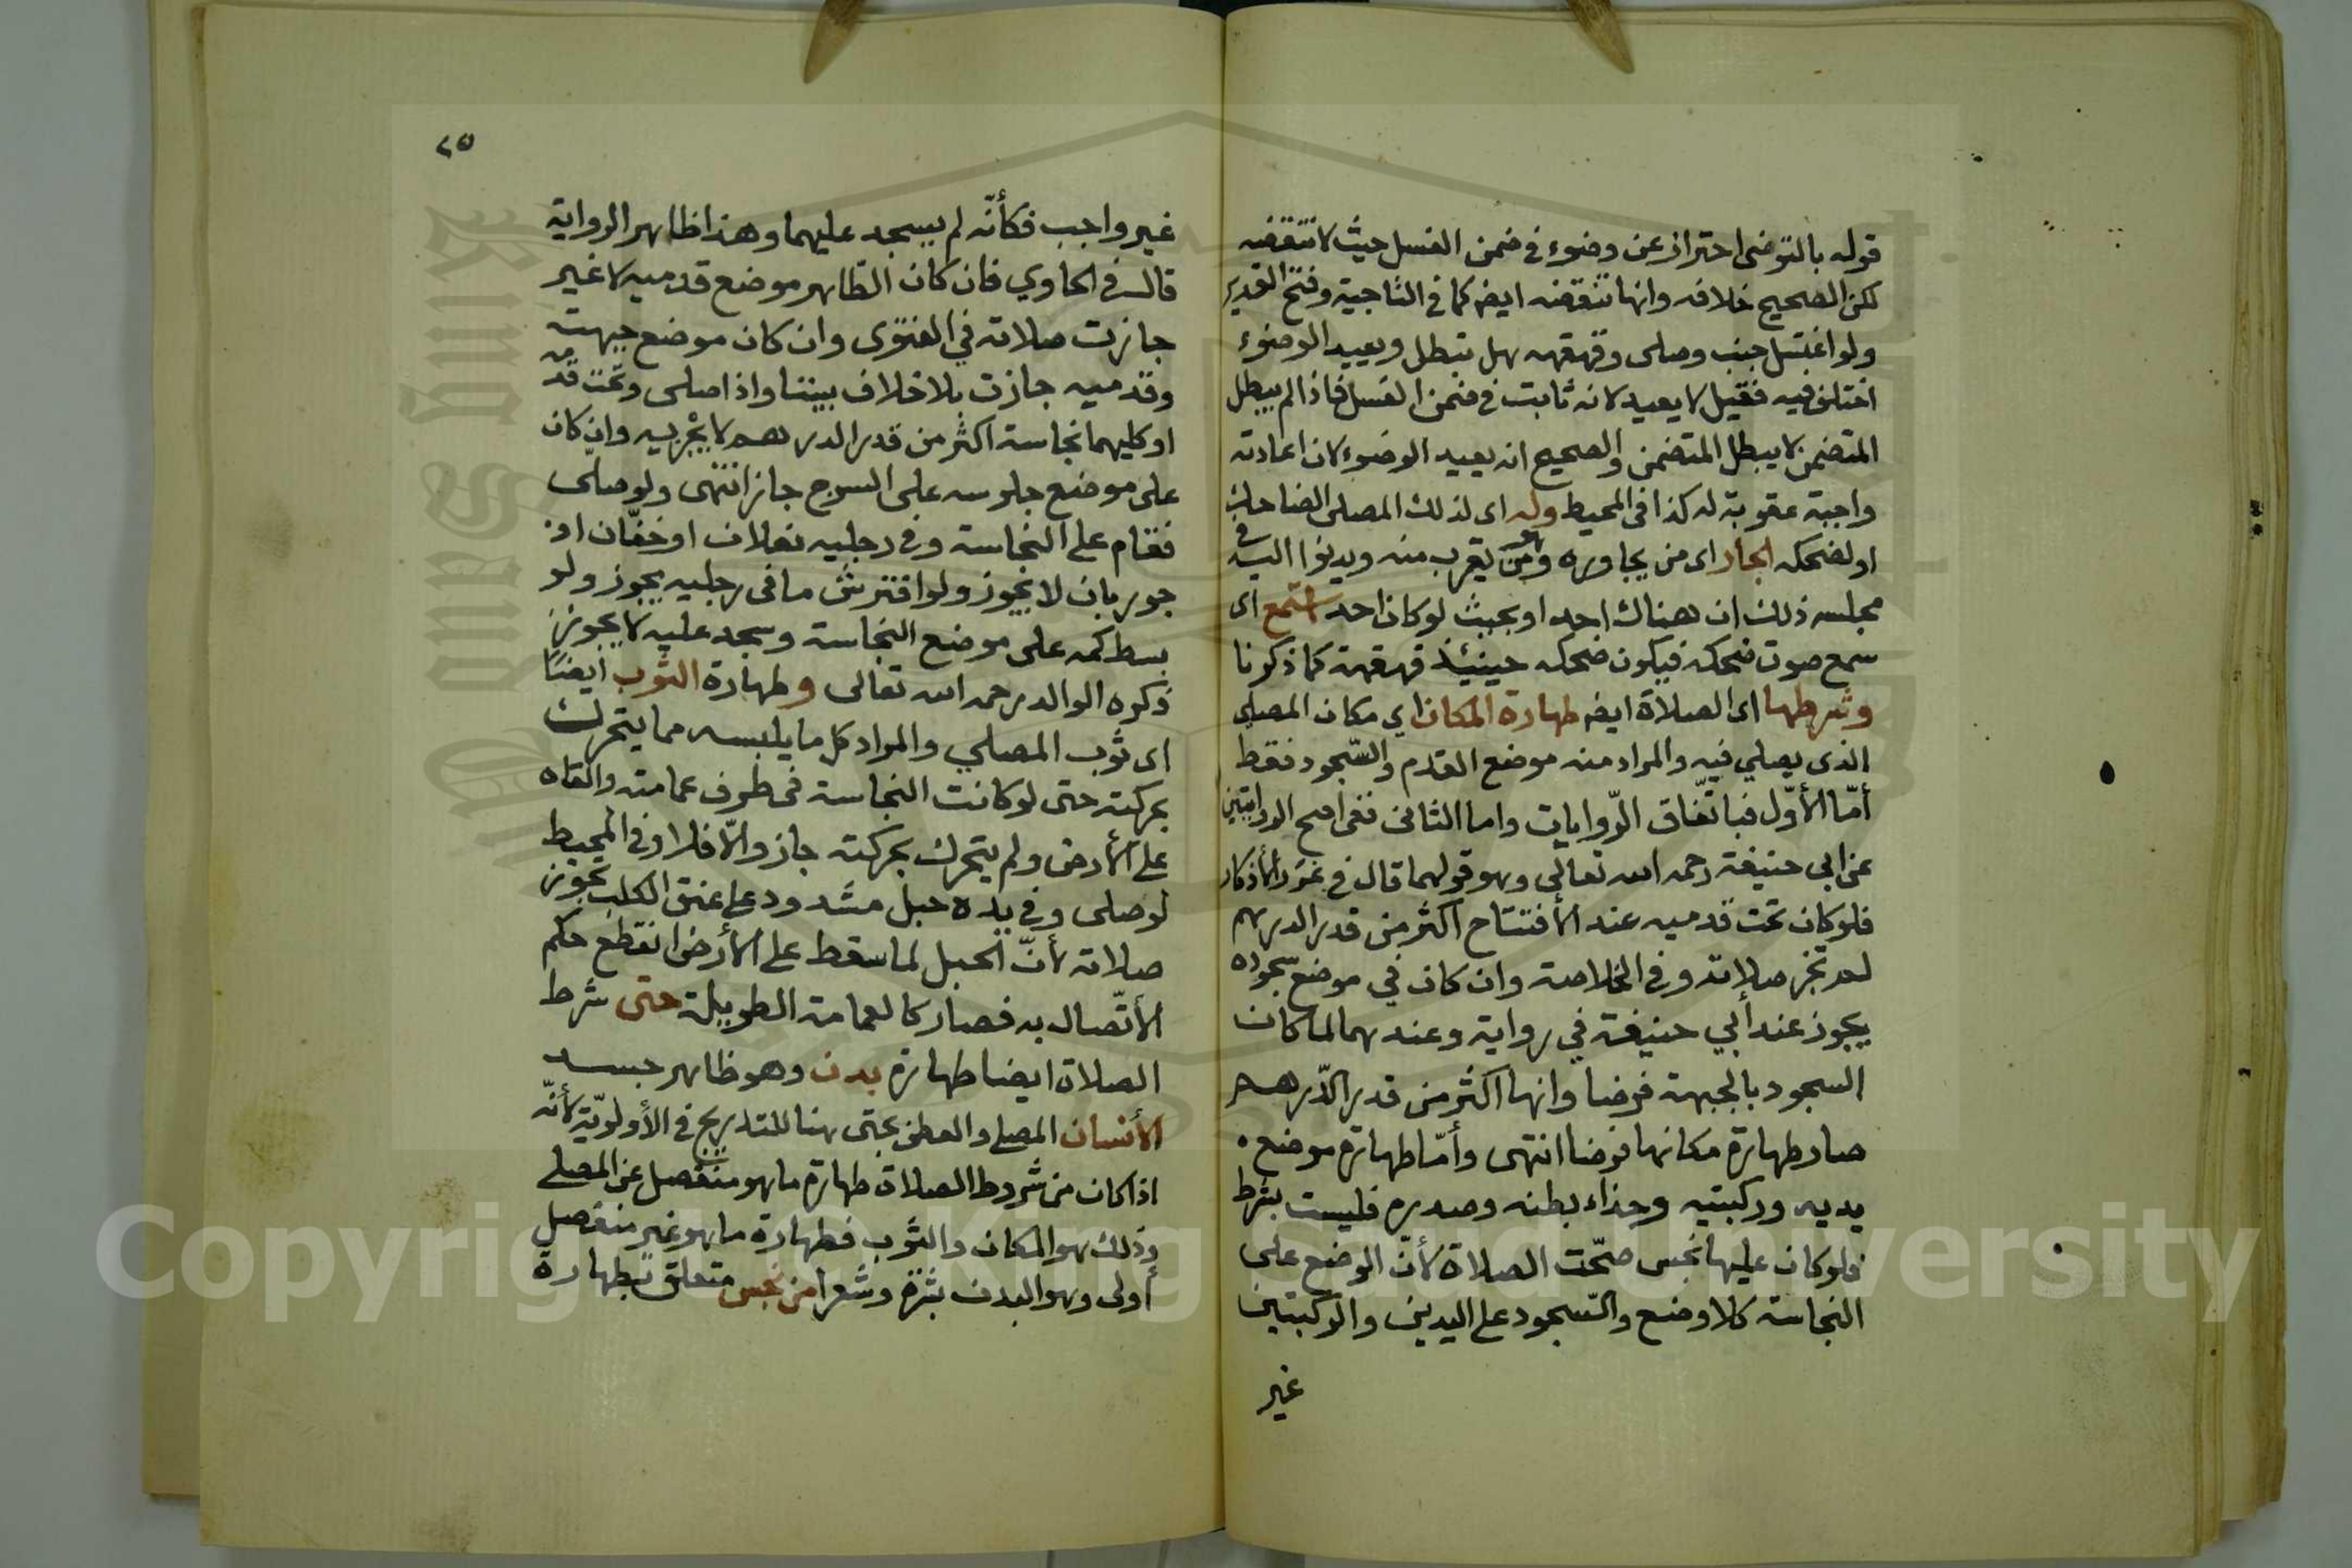 قوله بالتوضى احتراز عن وضوء في ضمن الغسل حيث لا تنقضه
لكن الصحيح خلافه وانها تنقضه ايضا كما في التاجية وفتح القدير
ولو اغتسل جنب وصلى وقهقهه هل تبطل ويعيد الوضوء
اختلف فيه فقيل لا يعيد لانه ثابت في ضمن الغسل فاذا لم يبطل
المتضمن لا يبطل المتضمن والصحيح انه يعيد الوضوء لان اعادته
واجبة عقوبة له كذا في المحيط وله اى لذلك المصلى الضاحك
او لضحكه الجار اى من يجاوره وهو من يقرب منه ويدنوا اليه في
مجلسه ذلك ان هناك احد او بحيث لو كان احد استمع اى
سمع صوت ضحكه فيكون ضحكه حينئذ قهقهة كما ذكرنا
وشرطها اى الصلاة ايضا طهارة المكان اي مكان المصلي
الذى يصلي فيه والمراد منه موضع القدم والسّجود فقط
أمّا الأوّل فباتّفاق الرّوايات واما الثانى ففى اصح الروايتين
عن ابي حنيفة رحمه الله تعالى وهو قولهما قال في غرر الأذكار
فلو كان تحت قدميه عند الأفتتاح اكثر من قدر الدرهم
لم تجز صلاته وفي الخلاصة وان كان في موضع سجوده
يجوز عند أبي حنيفة في رواية وعندهما لما كان
السجود بالجبهة فرضا وانها اكثر من قدر الدّرهم
صار طهارة مكانها فرضا انتهى وأمّا طهارة موضع
يديه وركبتيه وحذاء بطنه وصدره فليست بشرط
فلو كان عليها نجس صحّت الصلاة لأنّ الوضع على
النجاسة كلا وضع والسّجود على اليدين والركبتين
غير
٢٥
غير واجب فكأنّه لم يسجد عليهما وهذا ظاهر الرواية
قال في الحاوي فان كان الطّاهر موضع قدميه لا غير
جازت صلاته في الفتوى وان كان موضع جبهته
وقدميه جازت بلا خلاف بيننا واذا صلى وتحت قدمه
او كليهما نجاسة اكثر من قدر الدرهم لا يجزيه وان كان
على موضع جلوسه على السرج جاز انتهى ولو صلى
فقام على النجاسة وفي رجليه نعلان او خفّان او
جوربان لا يجوز ولو افترش ما فى رجليه يجوز ولو
بسط كمه على موضع النجاسة وسجد عليه لا يجوز
ذكره الوالد رحمه الله تعالى وطهارة الثوب ايضًا
اى ثوب المصلي والمراد كل ما يلبسه مما يتحرك
بحركته حتى لو كانت النجاسة فى طرف عمامته والقاه
على الأرض ولم يتحرك بحركته جاز والّا فلا وفي المحيط
لو صلى وفي يده حبل مشدود على عنق الكلب تجوز
صلاته لأنّ الحبل لما سقط على الأرض انقطع حكم
الأتّصال به فصار كالعمامة الطويلة حتى شرط
الصلاة ايضا طهارة بدن وهو ظاهر جسد
الأنسان المصلي والعطف بحتى هنا للتدريج في الأولويّة لأنّه
اذا كان من شروط الصلاة طهارة ما هو منفصل عن المصلي
وذلك هو المكان والثوب فطهارة ما هو غير منفصل
أولى وهو البدن بشرة وشعرا من نجس متعلق بطهارة